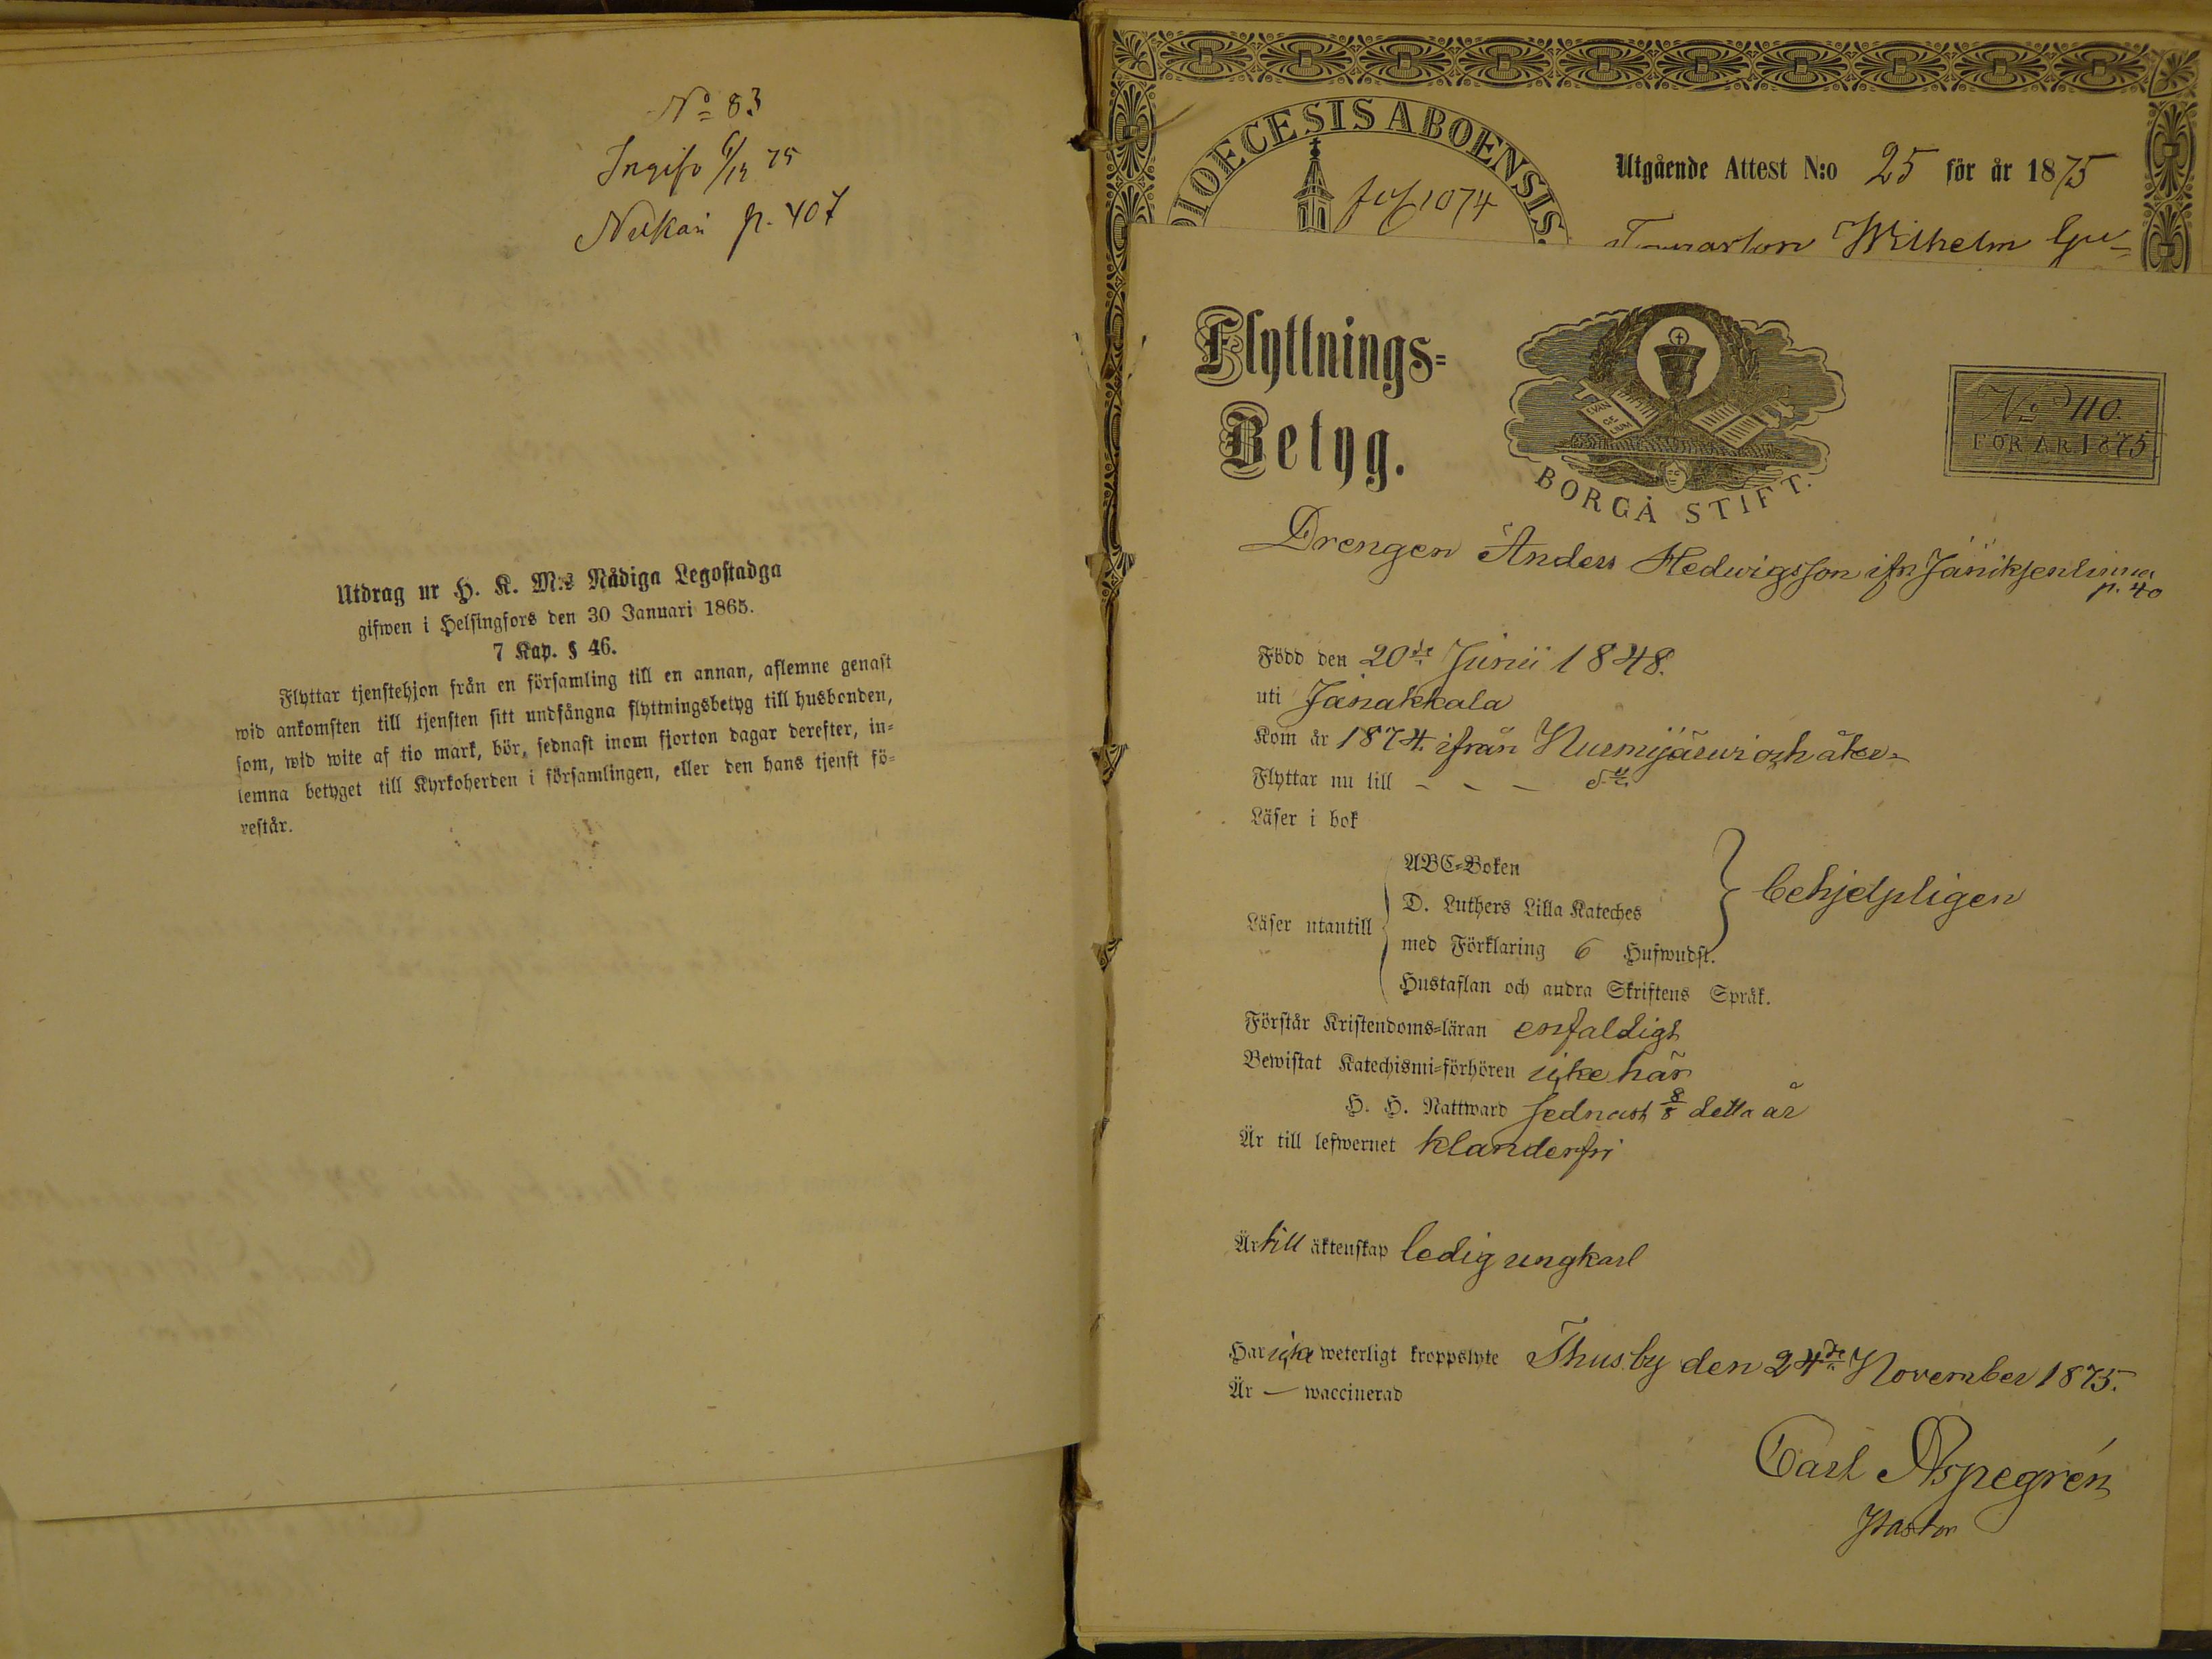 No 83
Ingifv 6/12 75
p. 407
Utdrag ur H. K. M:s Nådiga Legostadga
gifwen i Helsingfors den 30 Januari 1865.
7 Kap. § 46.
Flyttar tjenstehjon från en församling till en annan, aflemne genast
wid ankomsten till tjensten sitt undfångna flyttningsbetyg till husbonden,
som, wid wite af tio mark, bör, sednast inom fjorton dagar derefter, in-
lemna betyget till Kyrkoherden i församlingen, eller den hans tjenst fö-
restår.
DIOECESIS ABOENSIS.
1074
Utgående Attest N:o 25 för år 1875
Wilhelm Gu-
Flyttnings-
Betyg.
EVAN
GE
LIUM
BORGÅ STIFT.
No 110.
FÖR ÅR 1875
Drengen Anders Hedwigsson ifr. Jäniksenlinna
p. 40
Född den 20de Junii 1848.
uti Janakkala
Kom år 1874. ifrån Nurmijärwi och åter-
Flyttar nu till - - - d:o
Läser i bok
Läser utantill
ABC-Boken
D. Luthers Lilla Kateches
med Förklaring 6 Hufwudst.
Hustaflan och andra Skriftens Språk.
behjelpligen
Förstår Kristendoms-läran enfaldigt
Bewistat Katechismi-förhören icke här
H. H. Nattward sednast 8/8 detta år
Är till lefwernet klanderfri
Är till äktenskap ledig ungkarl
Har icke weterligt kroppslyte Thusby den 24de November 1875.
Är — waccinerad
Carl Aspegrén
Pastor